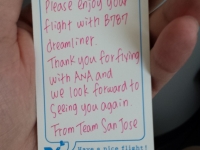 Please enjoy your
flight with B787
dreamliner.
Thank you for flying
with ANA and
we look forward to
seeing you again
From Team San Jose
Have a nice flight!